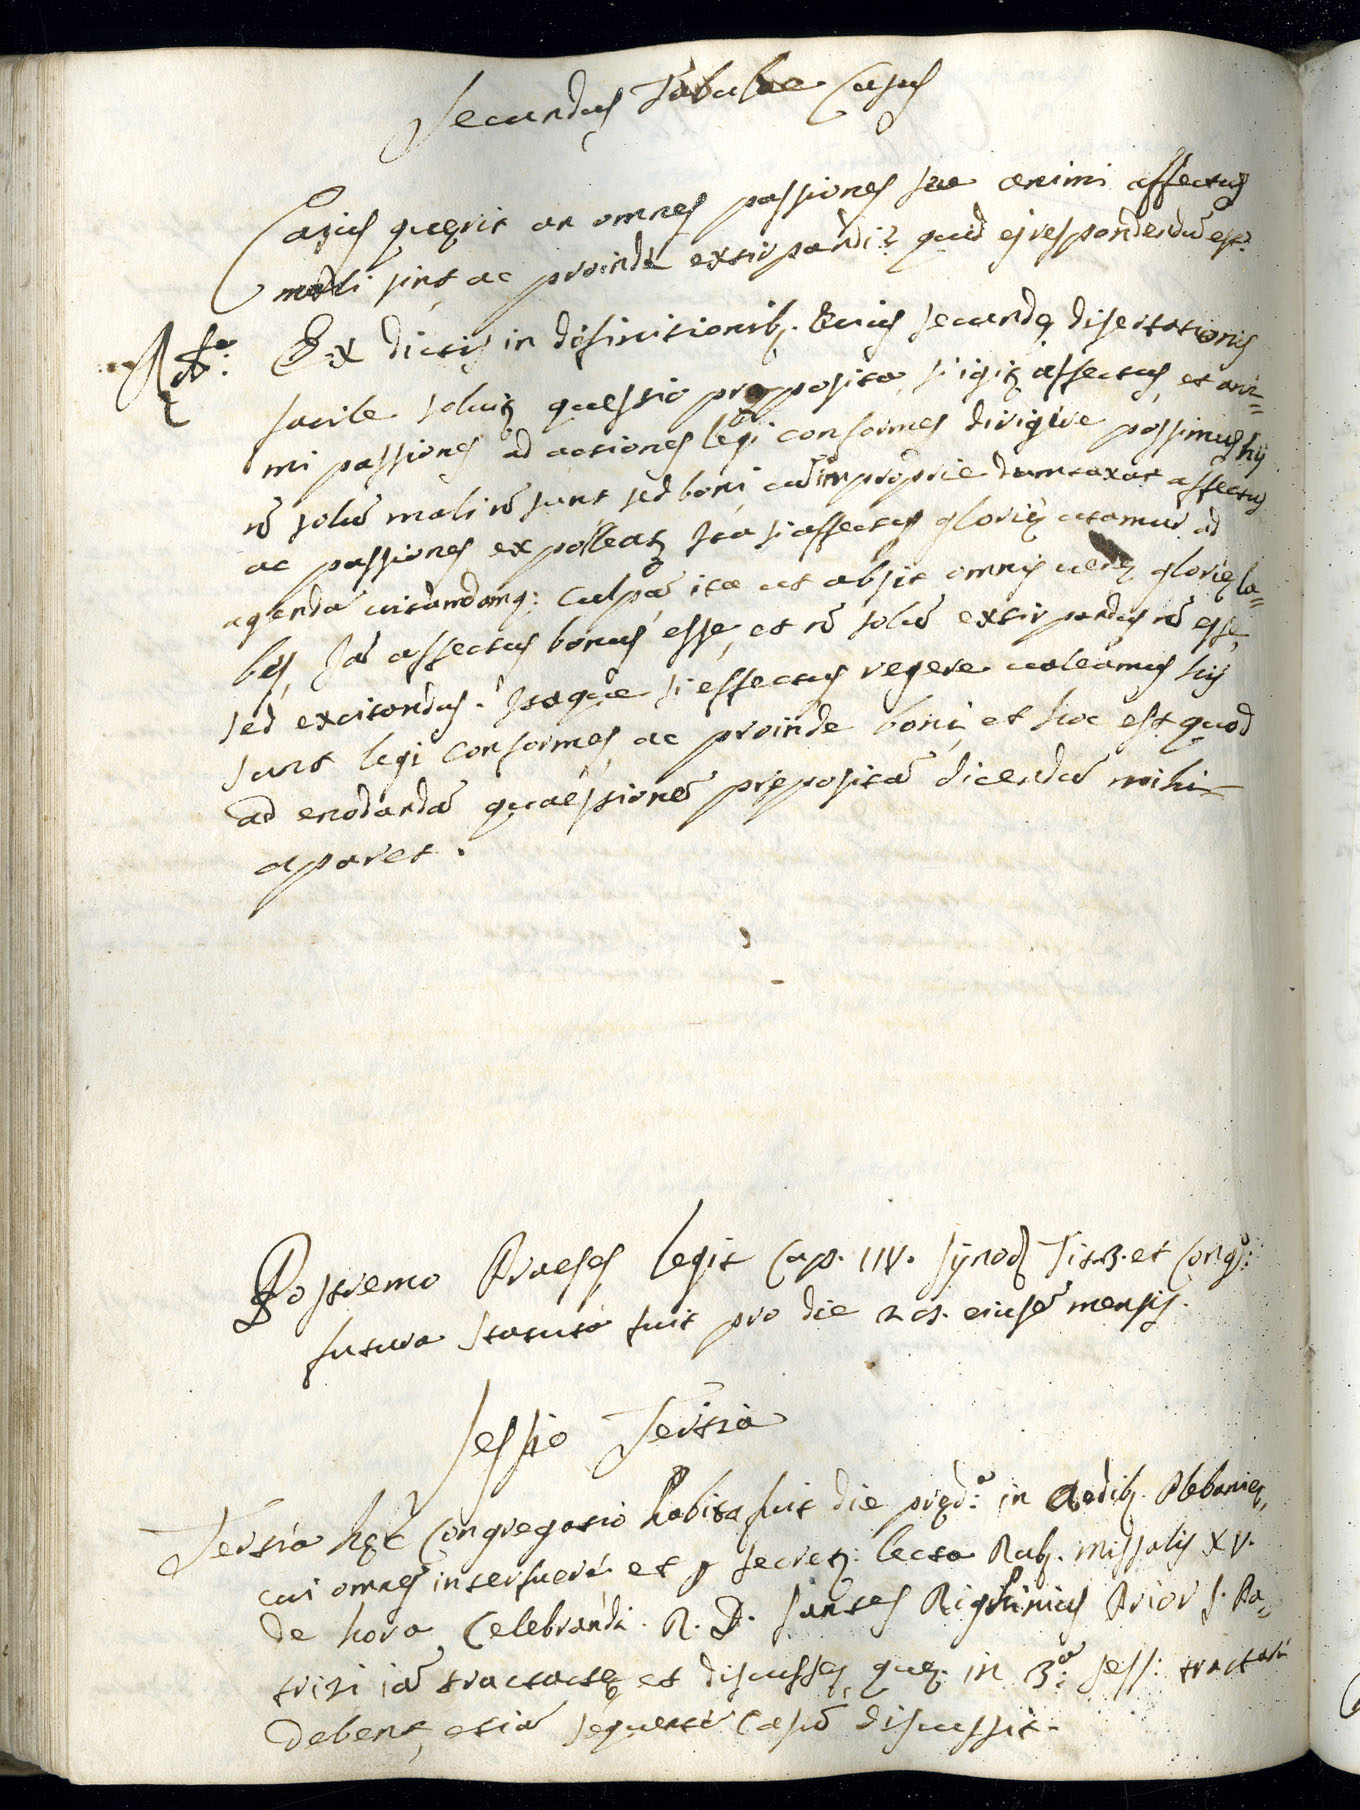 Secundus Tabulae Casus
Casus quęrit an omnes passiones sue animi affectus
mali sint, ac proinde extirpandi? quid ei respondendū est?
Rta: Ex dictis in difinitionib. Huius secundę disertationis
facile soluit quęstio proposita, si igit affectus, et ani=
mi passiones ad actiones legi conformes dirigere possimus hij
nō solū mali nō sunt sed boni, cū improprie dumtaxat affectus
ac passiones expolleat. Ita si affectus glorię utamur ad
agenda uitandamq; culpā, ita ut absit omnis uanę glorię la=
bes, Iā affectus bonus esse, et nō solū extirpandus nō esse,
sed excitandus. Itaque si affectus regere ualeamus hij
sunt legi conformes, ac proinde boni, et hoc est quod
ad enodandā quaestionē prępositā dicendū mihi
aparet.
Postremo Praeses legit Cap. IIV. Synod. Tit. 3. et Congo:
futura statuta fuit pro die 25. eiusdē mensis.
Sessio Tertia
Tertia hęc Congregatio habita fuit die pręda: in Aedib. Plebanię,
cui omnes interfuerū et p secret: lecta Rub. missalis XV.
de hora Celebrandi. R. D. Santes Righinius Prior S. Pa=
trizi iā tractactę et discussę quę in 3a: sess: tractari
debent, etiā sequentē Casū discussit.